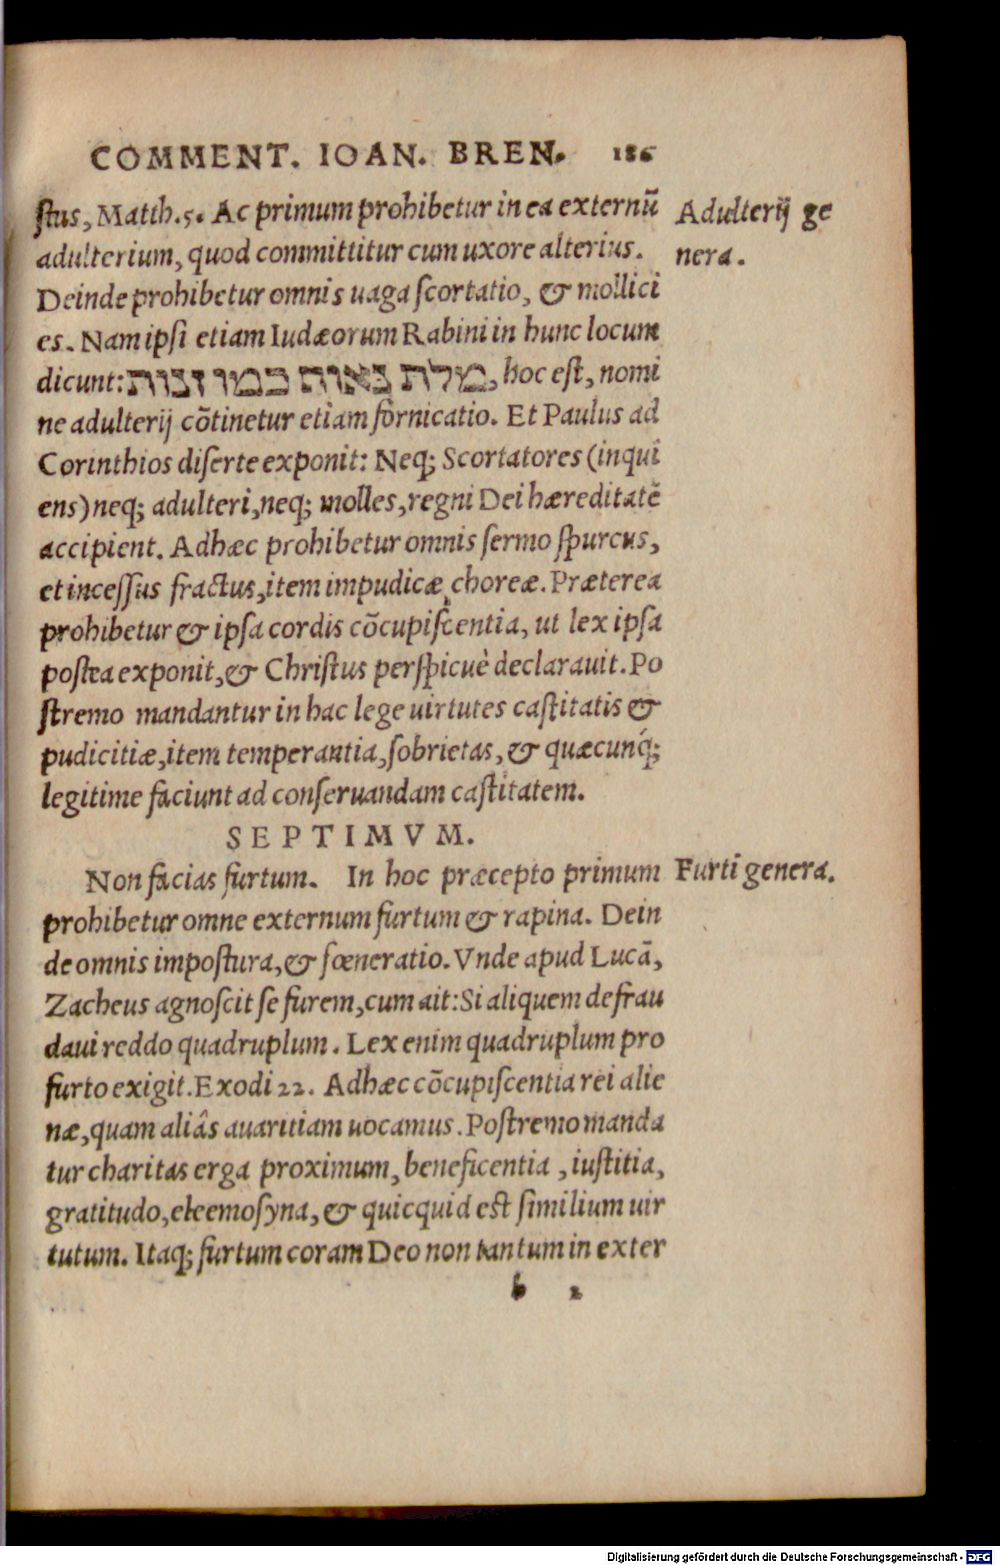 COMMENT. IOAN. BREN. 186
stus, Matth.5. Ac primum prohibetur in ea externũ
Adulterij ge
adulterium, quod committitur cum uxore alterius.
nera.
Deinde prohibetur omnis uaga scortatio, & mollici
es. Nam ipsi etiam Iudæorum Rabini in hunc locum
dicunt: מלת נאוף כמו זנות, hoc est, nomi
ne adulterij cõtinetur etiam fornicatio. Et Paulus ad
Corinthios diserte exponit: Neq; Scortatores (inqui
ens) neq; adulteri, neq; molles, regni Dei hæreditatẽ
accipient. Adhæc prohibetur omnis sermo spurcus,
et incessus fractus, item impudicæ choreæ. Præterea
prohibetur & ipsa cordis cõcupiscentia, ut lex ipsa
postea exponit, & Christus perspicuè declarauit. Po
stremo mandantur in hac lege uirtutes castitatis &
pudicitiæ, item temperantia, sobrietas, & quæcunq;
legitime faciunt ad conseruandam castitatem.
SEPTIMVM.
Non facias furtum. In hoc præcepto primum
Furti genera.
prohibetur omne externum furtum & rapina. Dein
de omnis impostura, & fœneratio. Vnde apud Lucã,
Zacheus agnoscit se furem, cum ait: Si aliquem defrau
daui reddo quadruplum. Lex enim quadruplum pro
furto exigit. Exodi 22. Adhæc cõcupiscentia rei alie
næ, quam aliâs auaritiam uocamus. Postremo manda
tur charitas erga proximum, beneficentia, iustitia,
gratitudo, eleemosyna, & quicquid est similium uir
tutum. Itaq; furtum coram Deo non tantum in exter
b 2
Digitalisierung gefördert durch die Deutsche Forschungsgemeinschaft - DFG